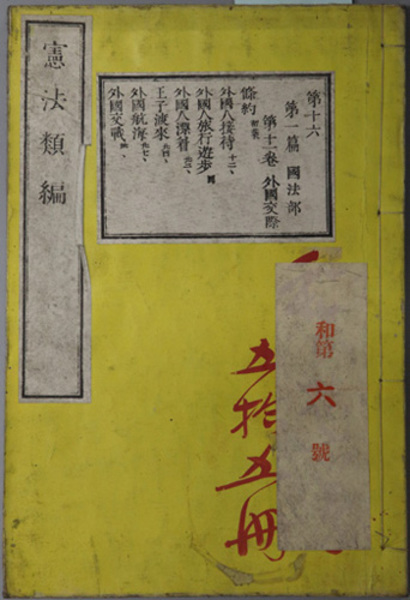 憲法類編
第十六
第一篇 國法部
第十二卷 外國交際
條約
外國人接待
外國人旅行遊歩
外國人漂着
王子渡來
外國航海
外國交戰
和第六號
五拾五冊